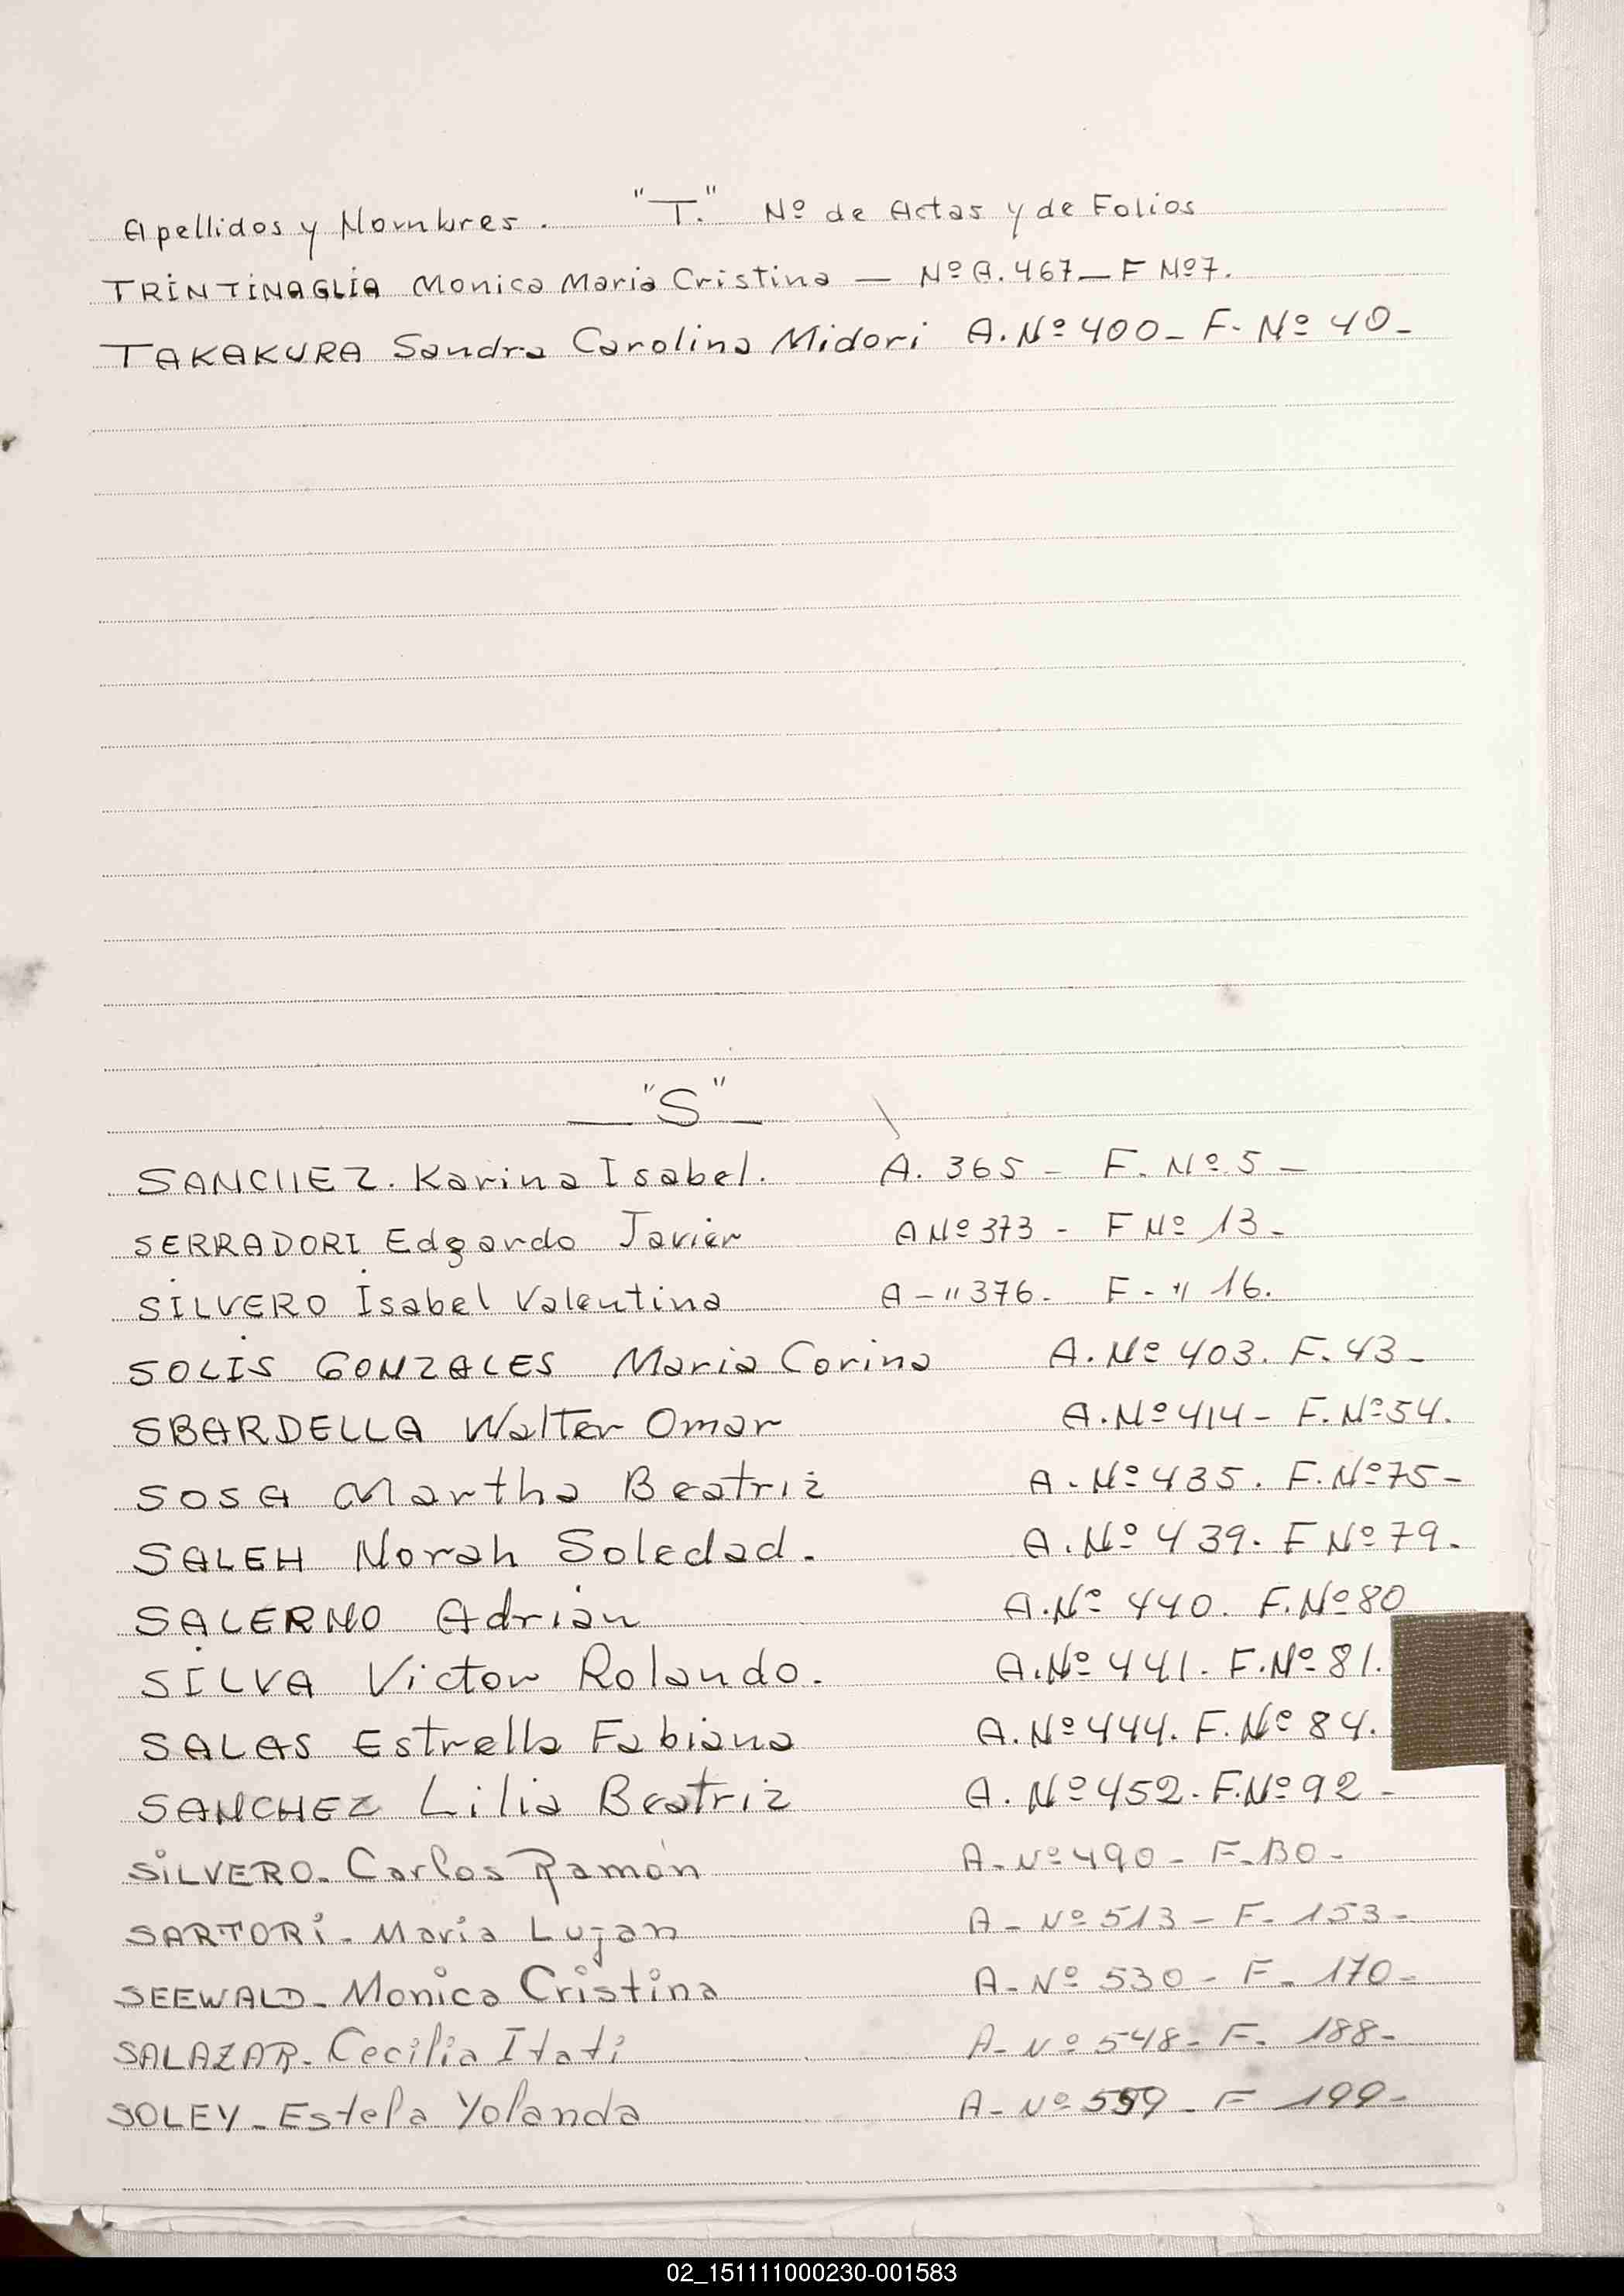 Apellidos y Nombres. "T." Nº de Actas y de Folios
TRINTINAGLIA Monica Maria Cristina — Nº A. 467 — F Nº 7.
TAKAKURA Sandra Carolina Midori A. Nº 400 - F. Nº 40 -
— "S" —
SANCHEZ. Karina Isabel. A. 365 - F. Nº 5 -
SERRADORI Edgardo Javier A Nº 373 - F Nº 13 -
SILVERO Isabel Valentina A - " 376 - F - " 16.
SOLIS GONZALES Maria Corina A. Nº 403. F. 43 -
SBARDELLA Walter Omar A. Nº 414 - F. Nº 54.
SOSA Martha Beatriz A. Nº 435. F. Nº 75 -
SALEH Norah Soledad. A. Nº 439. F Nº 79.
SALERNO Adrian A. Nº 440. F. Nº 80
SILVA Victor Rolando. A. Nº 441. F. Nº 81.
SALAS Estrella Fabiana A. Nº 444. F. Nº 84.
SANCHEZ Lilia Beatriz A. Nº 452. F. Nº 92 -
SILVERO - Carlos Ramón A - Nº 490 - F - 130 -
SARTORI - Maria Lujan A - Nº 513 - F - 153 -
SEEWALD - Monica Cristina A - Nº 530 - F - 170 -
SALAZAR - Cecilia Itati A - Nº 548 - F - 188 -
SOLEY - Estela Yolanda A - Nº 559 - F 199 -
02_151111000230-001583